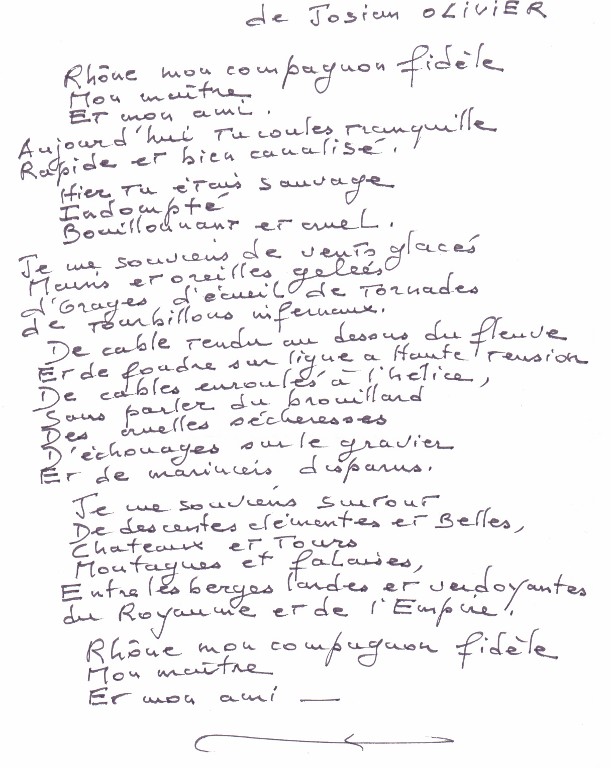 de Josian OLIVIER
Rhône mon compagnon fidèle
Mon maître
Et mon ami.
Aujourd'hui Tu coules tranquille
Rapide et bien canalisé.
Hier Tu étais sauvage
Indompté
Bouillonnant et cruel.
Je me souviens de vents glacés
Mains et oreilles gelées
d'Orages d'écueil de Tornades
de Tourbillons infernaux.
De cable tendu au dessus du fleuve
Et de foudre sur ligne a Haute Tension
De cables enroulés à l'hélice,
Sans parler du brouillard
Des cruelles sécheresses
D'échouages sur le gravier
Et de mariniers disparus.
Je me souviens surtout
De descentes clémentes et Belles,
Chateaux et Tours
Montagnes et falaises,
Entre les berges landes et verdoyantes
du Royaume et de l'Empire.
Rhône mon compagnon fidèle
Mon maître
Et mon ami